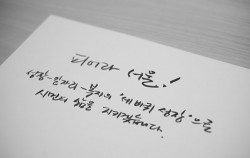 피어라 서울!
성장-일자리-복지의 "세바퀴 성장"으로
시민의 삶을 지키겠습니다.